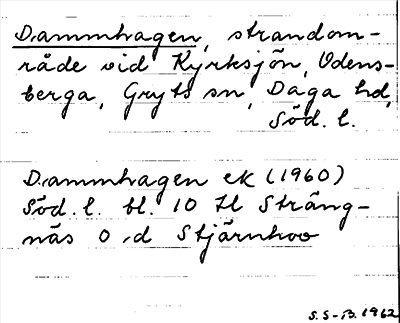 Dammhagen, strandom-
råde vid Kyrksjön, Odens-
berga, Gryts sn, Daga hd,
Söd. l.
Dammhagen ek (1960)
Söd. l. bl. 10 Il Sträng-
näs O .d Stjärnhov
S.S-B. 1962